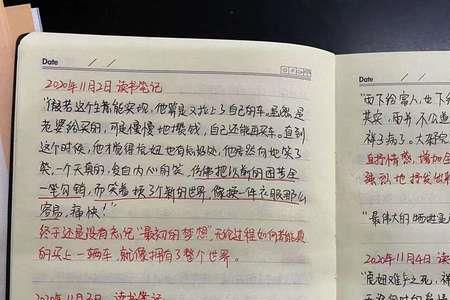 Date / /
2020年11月2日 读书笔记
"假若这个主意能实现,他算是又拉上了自己的车。虽然是
老婆给买的,可是慢慢地攒钱,自己还能再买车。直到
这个时候,他才觉得虎妞也有点好处,他居然向她笑了
笑,一个天真的,发自内心的笑,仿佛把以前的困苦全
一笔勾销,而笑着换了个新的世界,像换一件衣服那么
容易,痛快!"
终于还是没有忘记"最初的梦想",无论过程如何若能真
的买上一辆车,就像拥有了整个世界。
2020年11月3日 读书笔记
Date /
"雨下给富人,也下给
其实,雨并不公道
祥子病了。大杂院
直抒情感,增加全
强烈地抒发出
"最伟大的牺牲是
2020年11月4日 读
"虎妞难产之死,祥